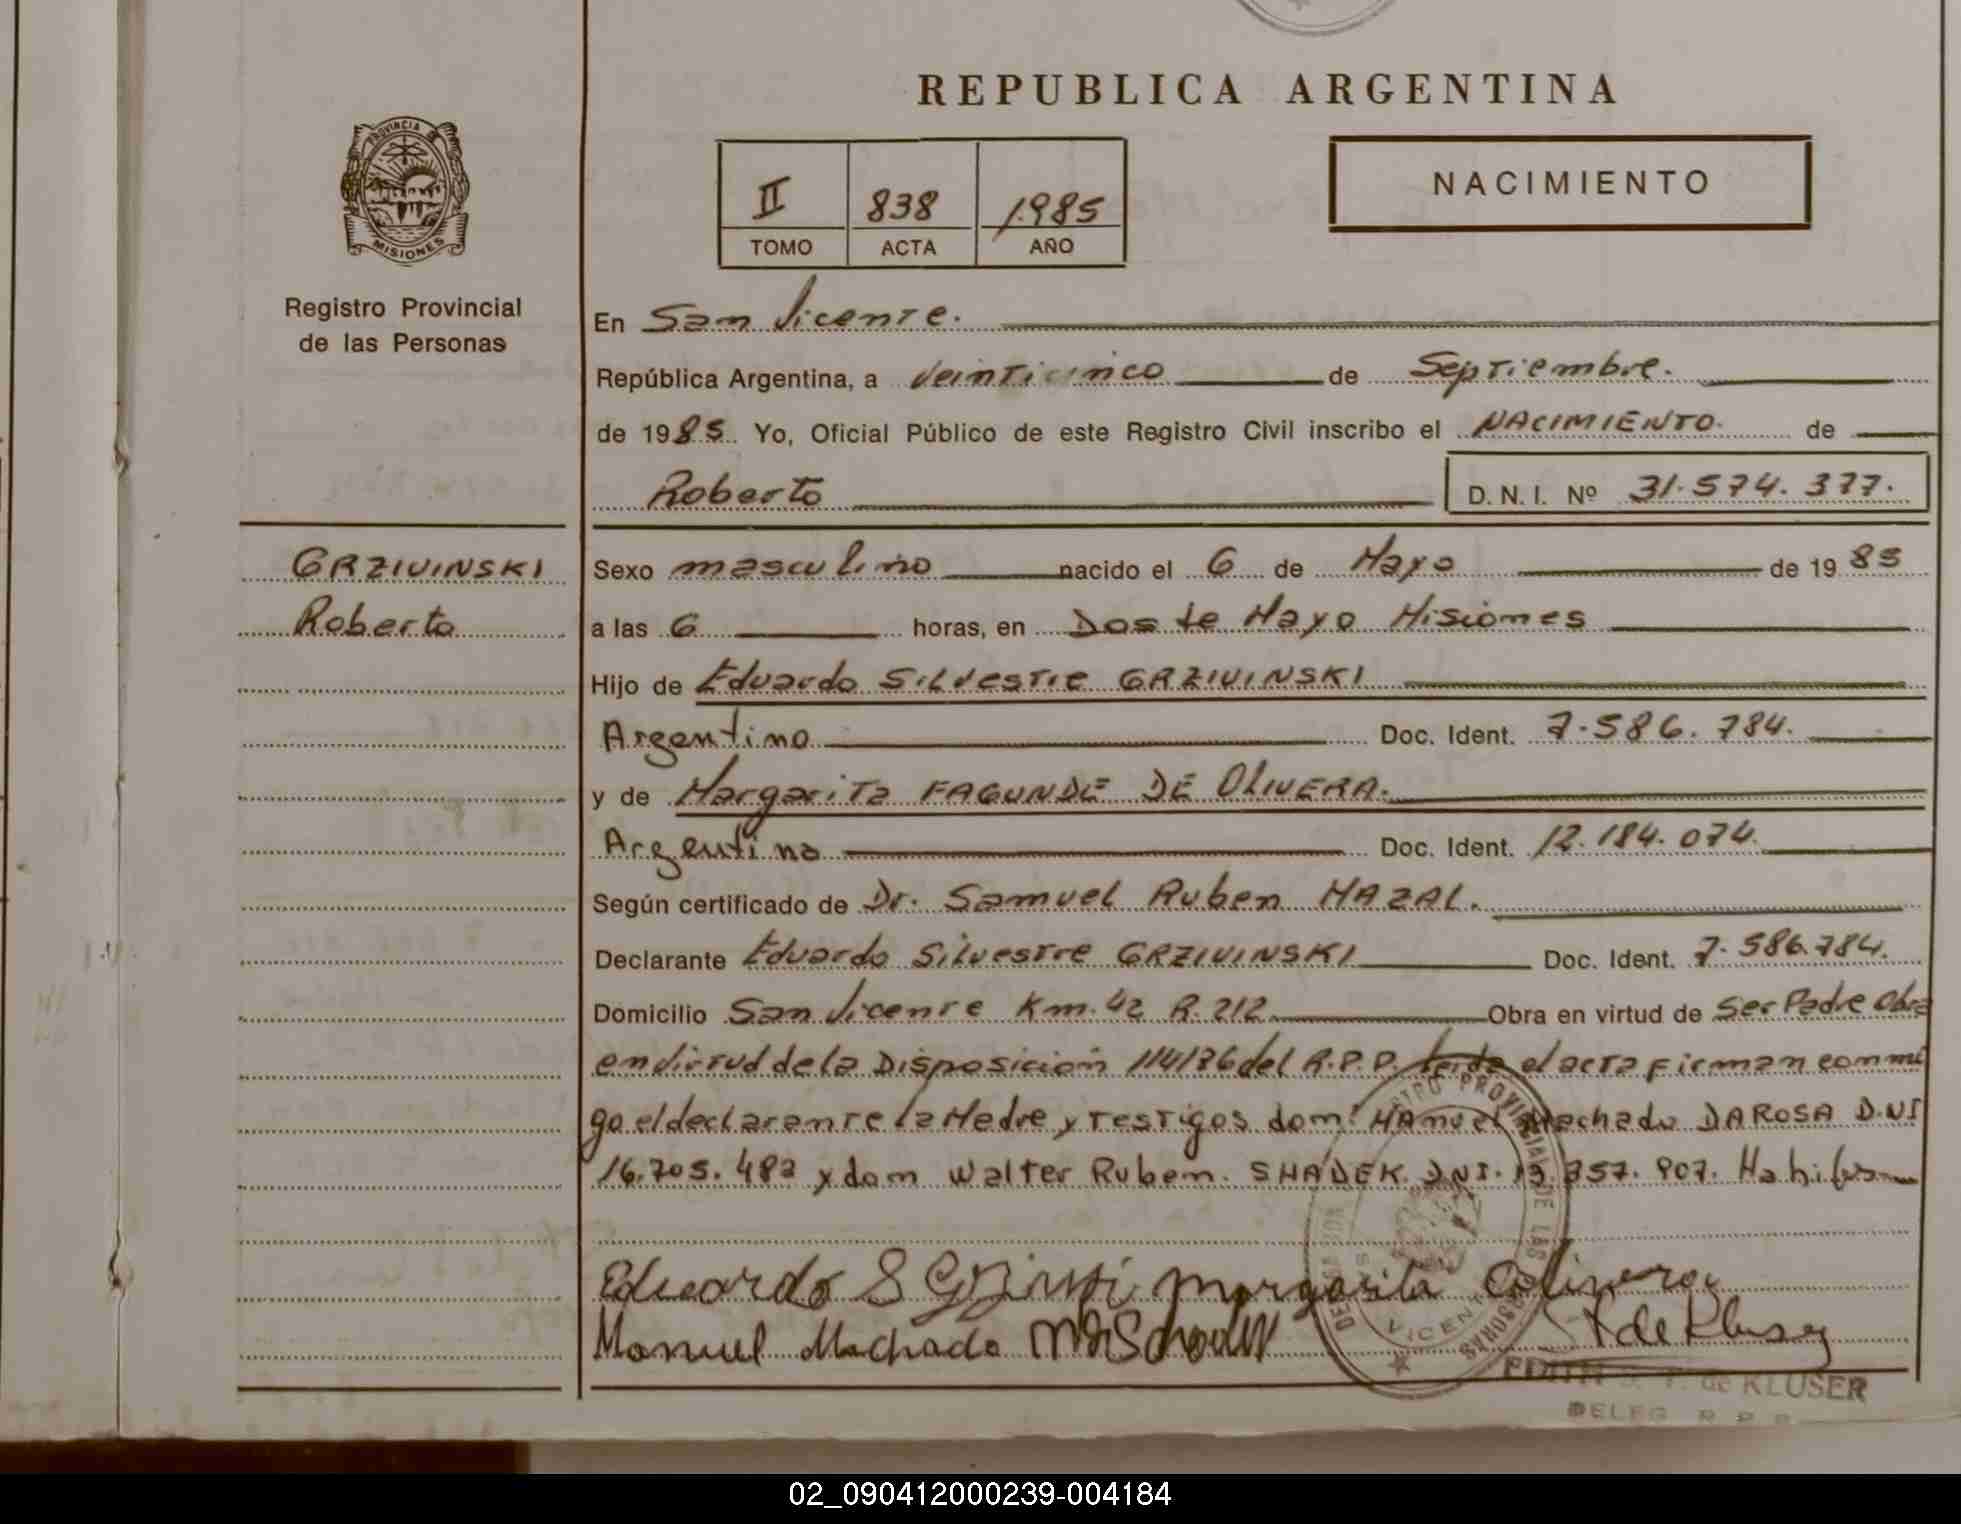 REPUBLICA ARGENTINA
PROVINCIA DE
MISIONES
II 838 1985
TOMO ACTA AÑO
NACIMIENTO
Registro Provincial
de las Personas
En San Vicente.
República Argentina, a veinticinco de Septiembre.
de 1985. Yo, Oficial Público de este Registro Civil inscribo el NACIMIENTO. de
Roberto D. N. I. Nº 31.574.377.
GRZIVINSKI
Roberto
Sexo masculino nacido el 6 de Mayo de 1985
a las 6 horas, en Dos de Mayo Misiones
Hijo de Eduardo SILVESTRE GRZIVINSKI
Argentino Doc. Ident. 7.586.784.
y de Margarita FAGUNDE DE OLIVERA.
Argentina Doc. Ident. 12.184.074.
Según certificado de Dr. Samuel Ruben HAZAL.
Declarante Eduardo Silvestre GRZIVINSKI Doc. Ident. 7.586.784.
Domicilio San Vicente Km. 42 R. 212. Obra en virtud de Ser Padre Obra
en virtud de la Disposición 114/76 del R.P.P. leida el acta firman conmi
go el declarante la Madre y testigos dom: Manuel Machado DAROSA D.NI
16.705.482 y dom Walter Ruben. SHADEK. DNI. 13.857.907.
Eduardo S Margarita Olivera
Manuel Machado St de Kluser
VICENTE
EDITH S. T. de KLUSER
DELEG. R. P. P.
02_090412000239-004184